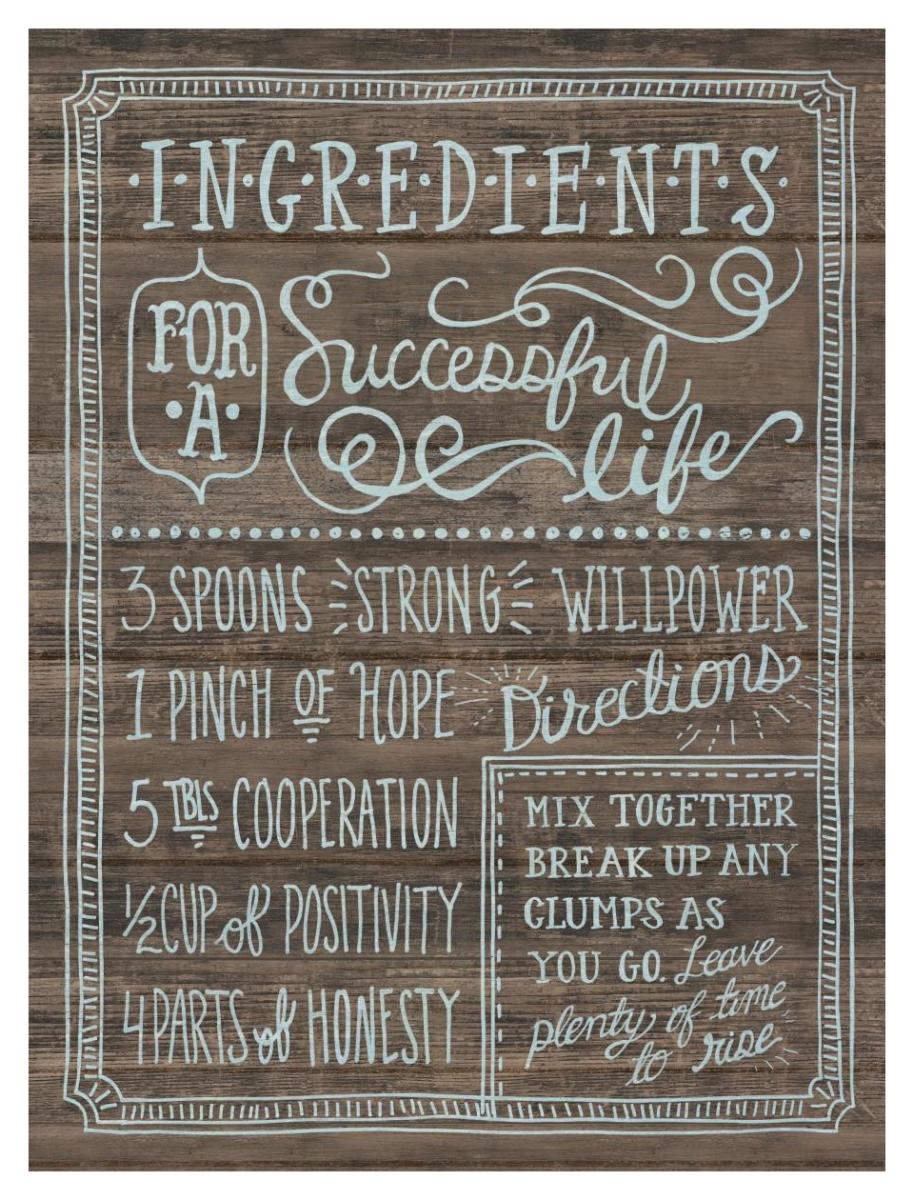 INGREDIENTS
FOR
A
Successful
life
3 SPOONS STRONG WILLPOWER
1 PINCH OF HOPE
5 TBLS COOPERATION
½ CUP of POSITIVITY
4 PARTS of HONESTY
Directions
MIX TOGETHER
BREAK UP ANY
CLUMPS AS
YOU GO. Leave
plenty of time
to rise